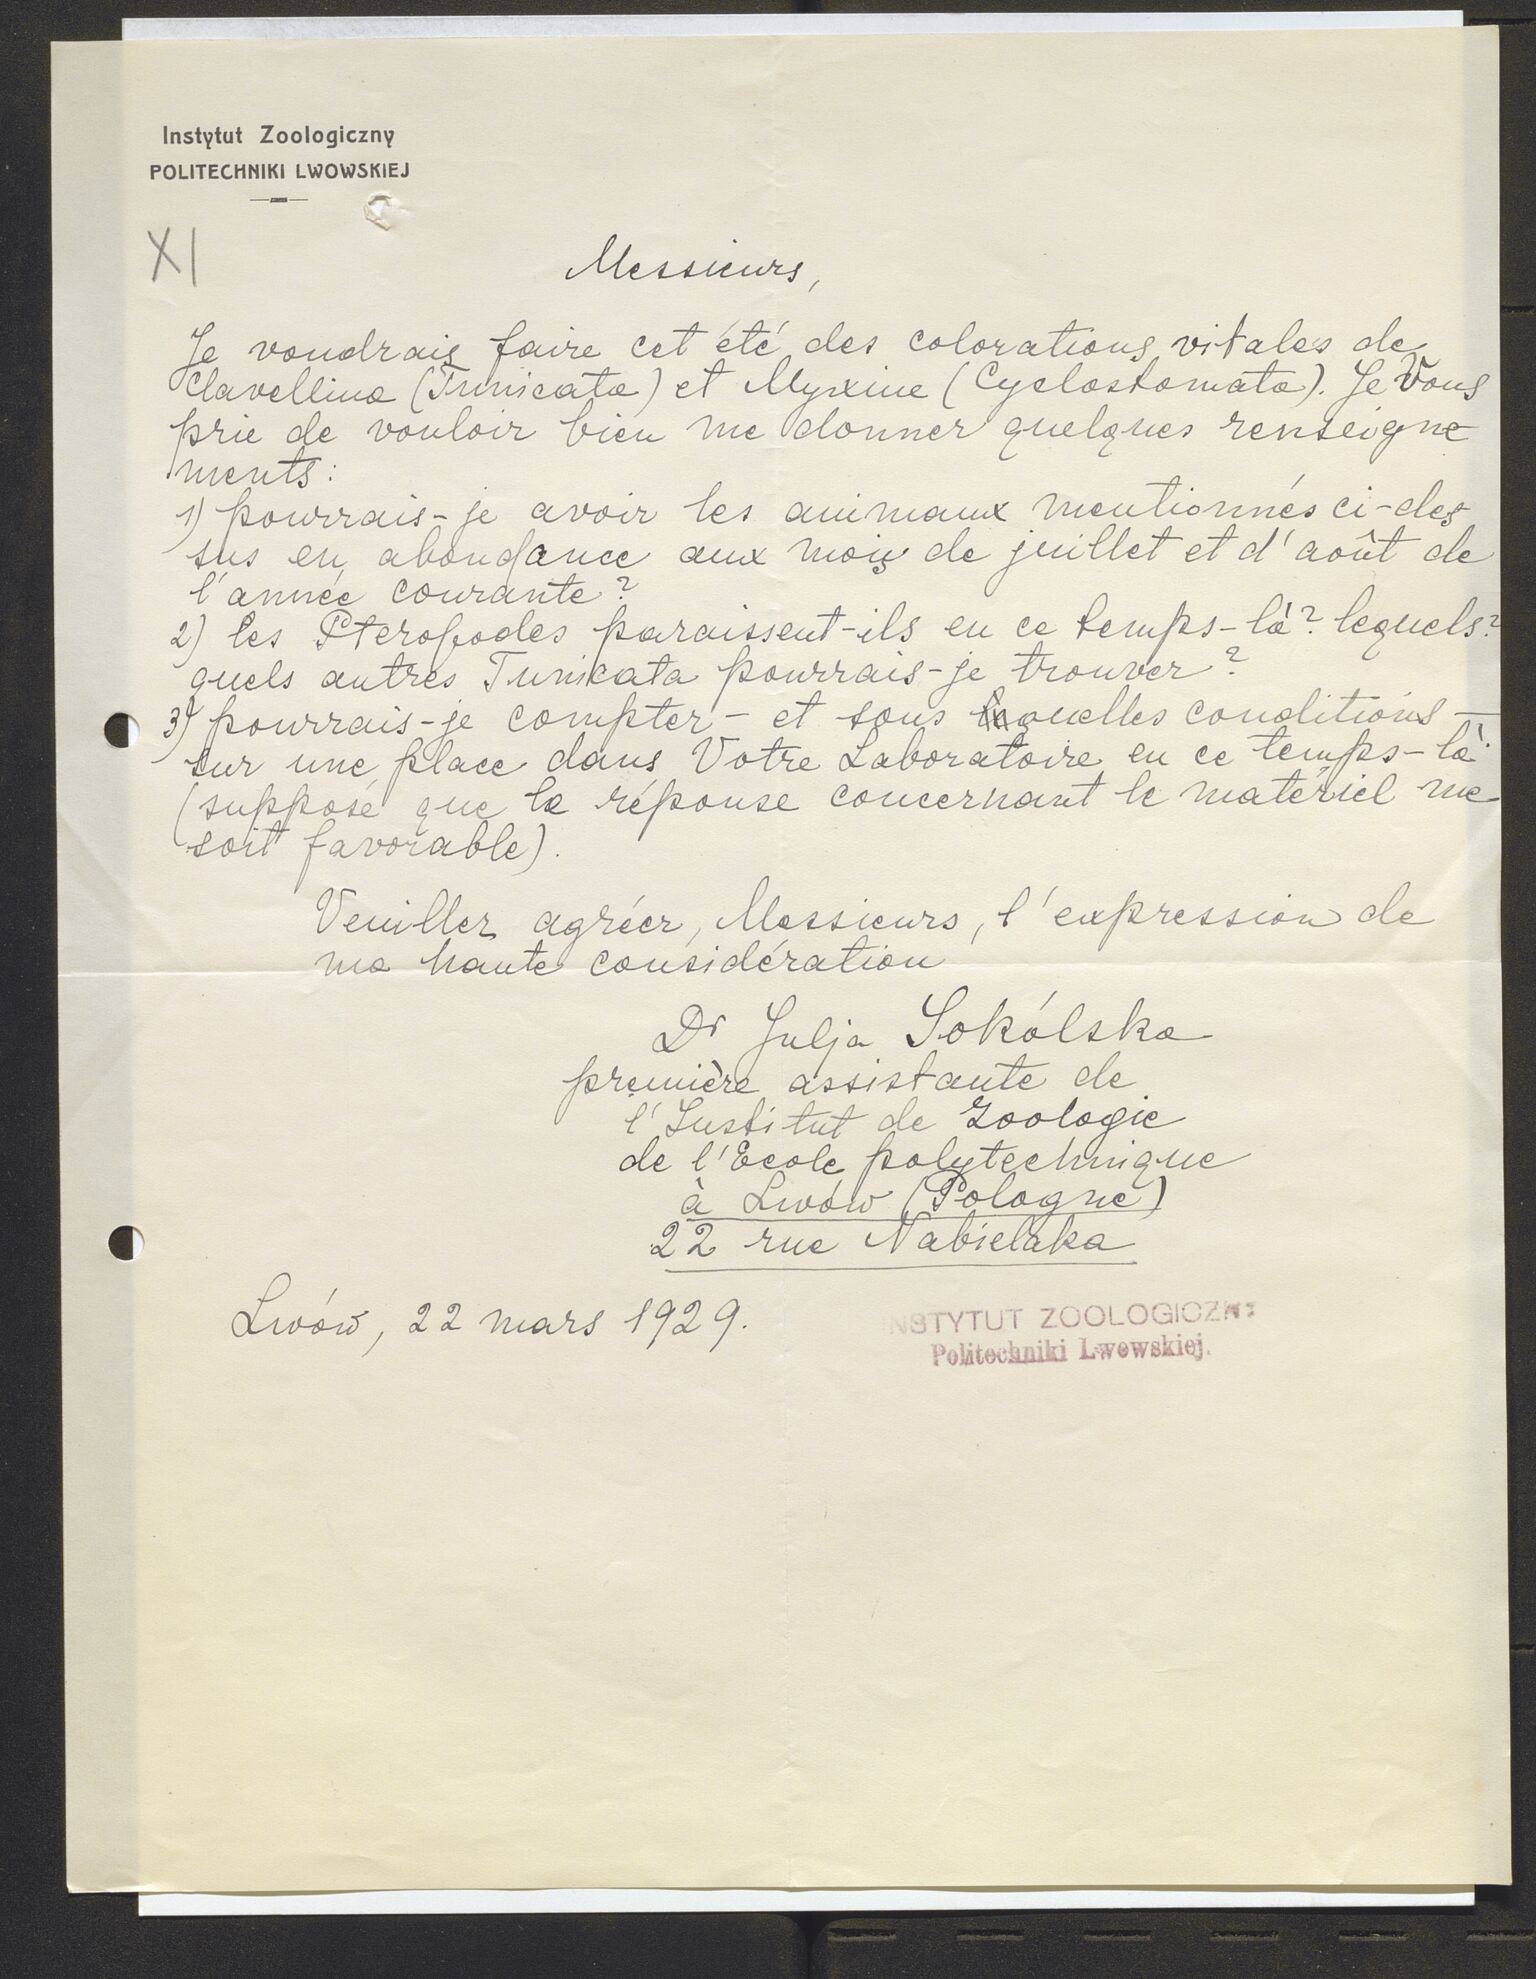 Instytut Zoologiczny
POLITECHNIKI LWOWSKIEJ
XI
Messieurs,
Je voudrais faire cet été des colorations vitales de
Clavellina (Tunicata) et Myxine (Cyclostomata). Je Vous
prie de vouloir bien me donner quelques renseigne
ments:
1) pourrais-je avoir les animaux mentionnés ci-des
sus en abondance aux mois de juillet et d'août de
l'année courante?
2) les Pteropodes paraissent-ils en ce temps-là? lequels?
quels autres Tunicata pourrais-je trouver?
3) pourrais-je compter - et sous quelles conditions -
sur une place dans Votre Laboratoire en ce temps-là
(supposé que la réponse concernant le matériel me
soit favorable).
Veuillez agréer, Messieurs, l'expression de
ma haute considération
Dr Julja Sokólska
première assistante de
l'Institut de Zoologie
de l'Ecole polytechnique
à Lwów (Pologne)
22 rue Nabielaka
Lwów, 22 mars 1929.
INSTYTUT ZOOLOGICZNY
Politechniki Lwowskiej.